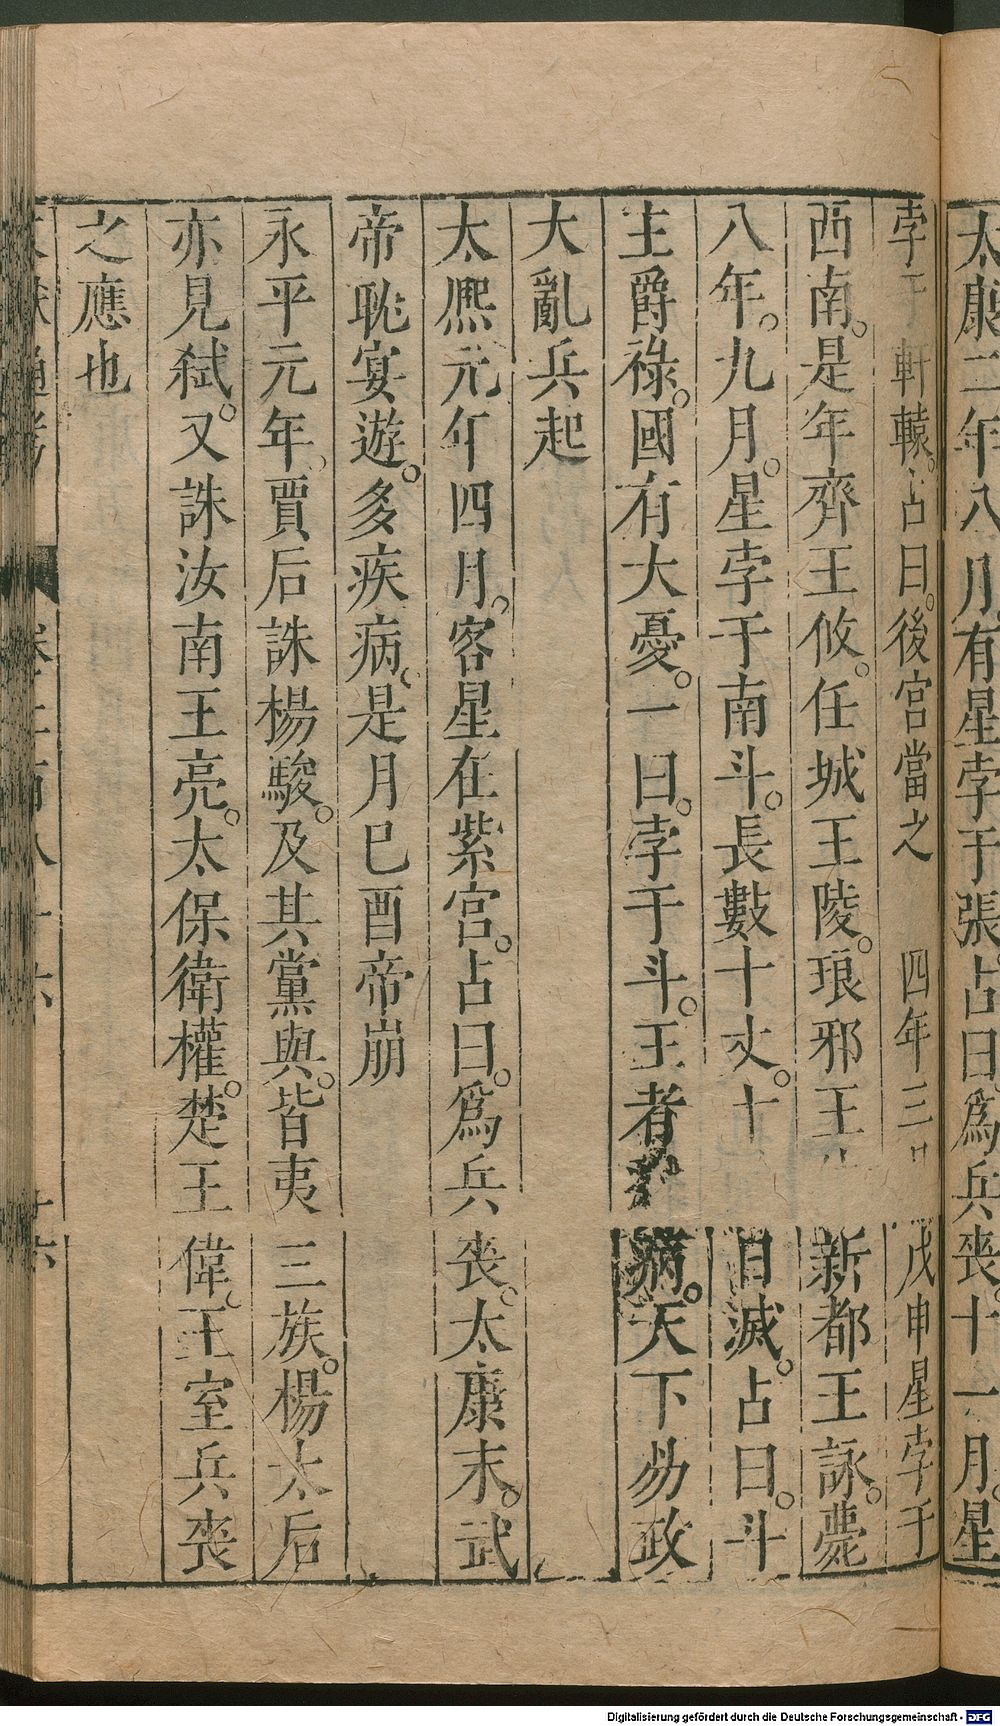 太康二年八月有星孛于張占曰爲兵喪。十一月。星
孛于軒轅。占曰。後宮當之　四年三月戊申星孛于
西南。是年齊王攸。任城王陵。琅邪王 新都王詠。薨
八年。九月。星孛于南斗。長數十丈。十 日滅。占曰。斗
主爵祿。國有大憂。一曰。孛于斗。王者 病。天下易政
大亂兵起
太熈元年四月。客星在紫宮。占曰。爲兵喪。太康末。武
帝耽宴遊。多疾病。是月巳酉帝崩
永平元年。賈后誅楊駿。及其黨與。皆夷三族。楊太后
亦見弑。又誅汝南王亮。太保衛權。楚王偉。王室兵喪
之應也
Digitalisierung gefördert durch die Deutsche Forschungsgemeinschaft - DFG